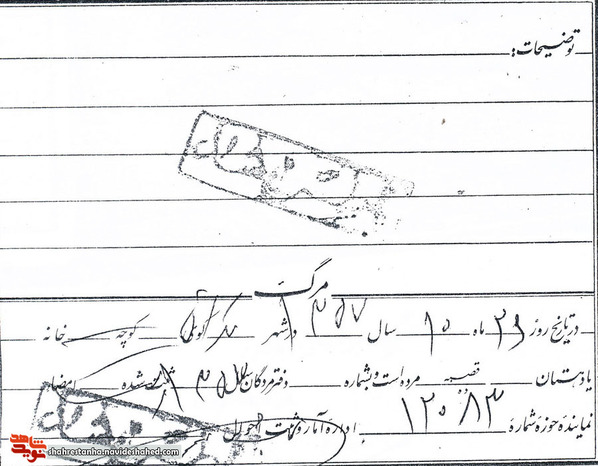 توضیحات:
مرگ
در تاریخ روز ۲۹ ماه ۱۰ سال ۱۳۵۷ در شهر کوچه خانه
یا دهستان قصبه مرده است و بشماره دفتر مردگان سال ۱۳۵۷ ثبت شده امضاء
نماینده حوزه شماره ۱۲۰۸۳ اداره آمار و ثبت احوال
نوید شاهد
shahrestanha.navideshahed.com